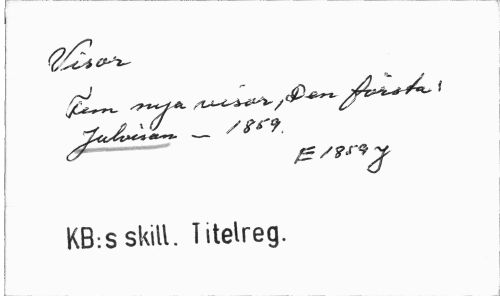 Visor
Fem nya visor, Den första:
Julvisan — 1859.
E 1859 y
KB:s skill. Titelreg.